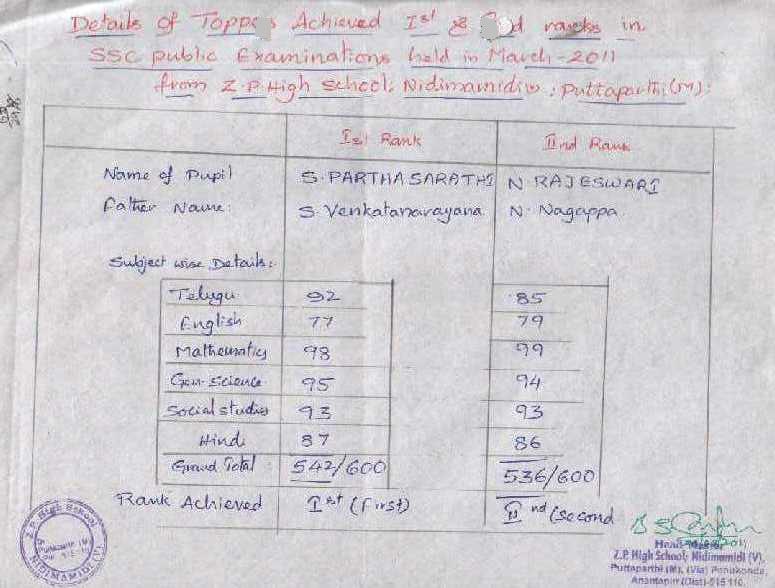 Details of Toppers Achieved Ist & IInd ranks in
SSC public Examinations held in March-2011
from Z.P.High school, Nidimamidi, Puttaparthi(M):
Ist Rank IInd Rank
Name of Pupil S. PARTHASARATHI N. RAJESWARI
Father Name: S. Venkatanarayana N. Nagappa
Subject wise Details:
Telugu 92 85
English 77 79
Mathematics 98 99
Gen. Science 95 94
Social studies 93 93
Hindi 87 86
Grand Total: 542/600 536/600
Rank Achieved Ist (First) IInd (Second
Z.P. High School
Puttaparthi (M)
NIDIMAMIDI (V)
Head Master
Z.P. High School, Nidimamidi (V).
Puttaparthi (M), (Via) Penukonda,
Anantapur (Dist)-515 110.